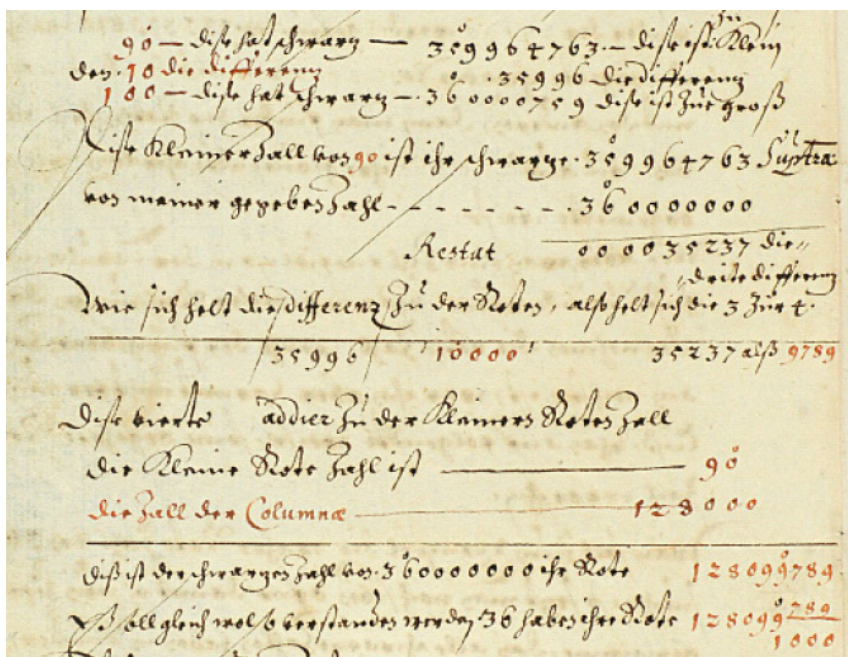 90 — diße hat schwarz — 359964763.— diße ist zu klein
den. 10 die differenz . 35996 die differenz
100 — diße hat schwarz —. 360000759 diße ist zue groß
Diße kleiner Zall von 90 ist ihr schwarze. 359964763 Suptra
von meiner gegeben Zahl - - - - - - - . 360000000
Restat 000035237 die
dritte differenz
Wie sich helt die differenz zu der Roten, also helt sich die 3 zur 4.
35996 10000 35237 alß 9789
Diße vierte addier zu der kleinern Roten Zall
die kleine Rote Zahl ist — 90
die Zall der Columnæ — 128000
diß ist der schwarzen Zahl von. 360000000 ihr Rote 128099789
soll gleich wol so verstanden werden, 36 haben ihre Rote 128099 789
1000